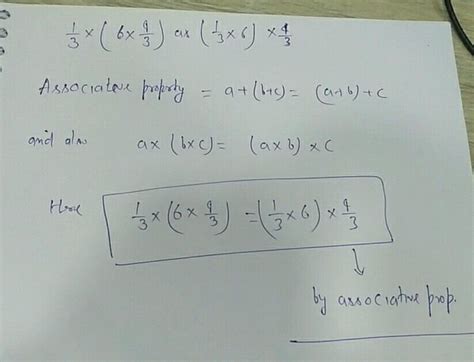 1/3 × (6 × 4/3) as (1/3 × 6) × 4/3
Associative property = a+(b+c) = (a+b)+c
and also a×(b×c) = (a×b)×c
Here 1/3 × (6 × 4/3) = (1/3 × 6) × 4/3
by associative prop.